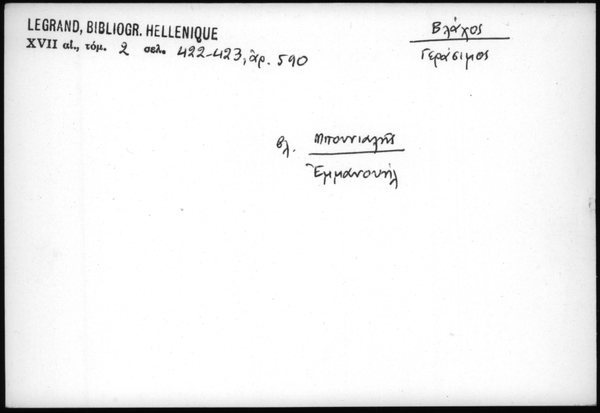 LEGRAND, BIBLIOGR. HELLENIQUE
XVII αἰ., τόμ. 2 σελ. 422-423, ἀρ. 590
Βλάχος
Γεράσιμος
βλ. Μπουνιαλῆς
Ἐμμανουήλ